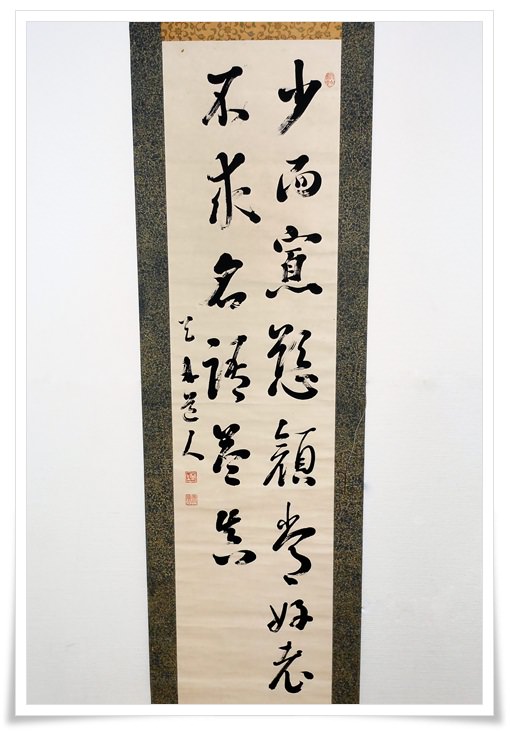 少而寡慾顔常好老
不求名語益真
道人